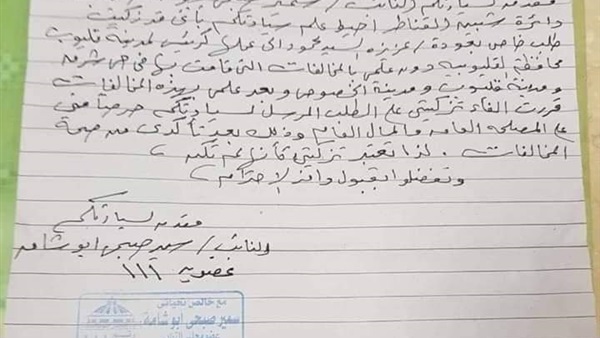 مقدمه لسيادتكم النائب / سمير
دائرة شبين القناطر احيط علم سيادتكم بأنى قد زكيت
طلب خاص بعودة / عزيزه السيد محمود الى عملها كرئيس لمدينة قليوب
محافظة القليوبية دون علمى بالمخالفات التى قامت بها فى حى شرق
ومدينة قليوب ومدينة الخصوص وبعد علمى بهذه المخالفات
قررت الغاء تزكيتى على الطلب المرسل لسيادتكم حرصا منى
على المصلحة العامه والمال العام وذلك بعد تأكدى من صحة
المخالفات . لذا تعتبر تزكيتى كأنها لم تكن ،
وتفضلوا بقبول وافر الاحترام ،
مقدمه لسيادتكم
النائب / سمير صبحى ابو شامه
عضوية ١١١
مع خالص تحياتى
سمير صبحى ابو شامة
عضو مجلس النواب